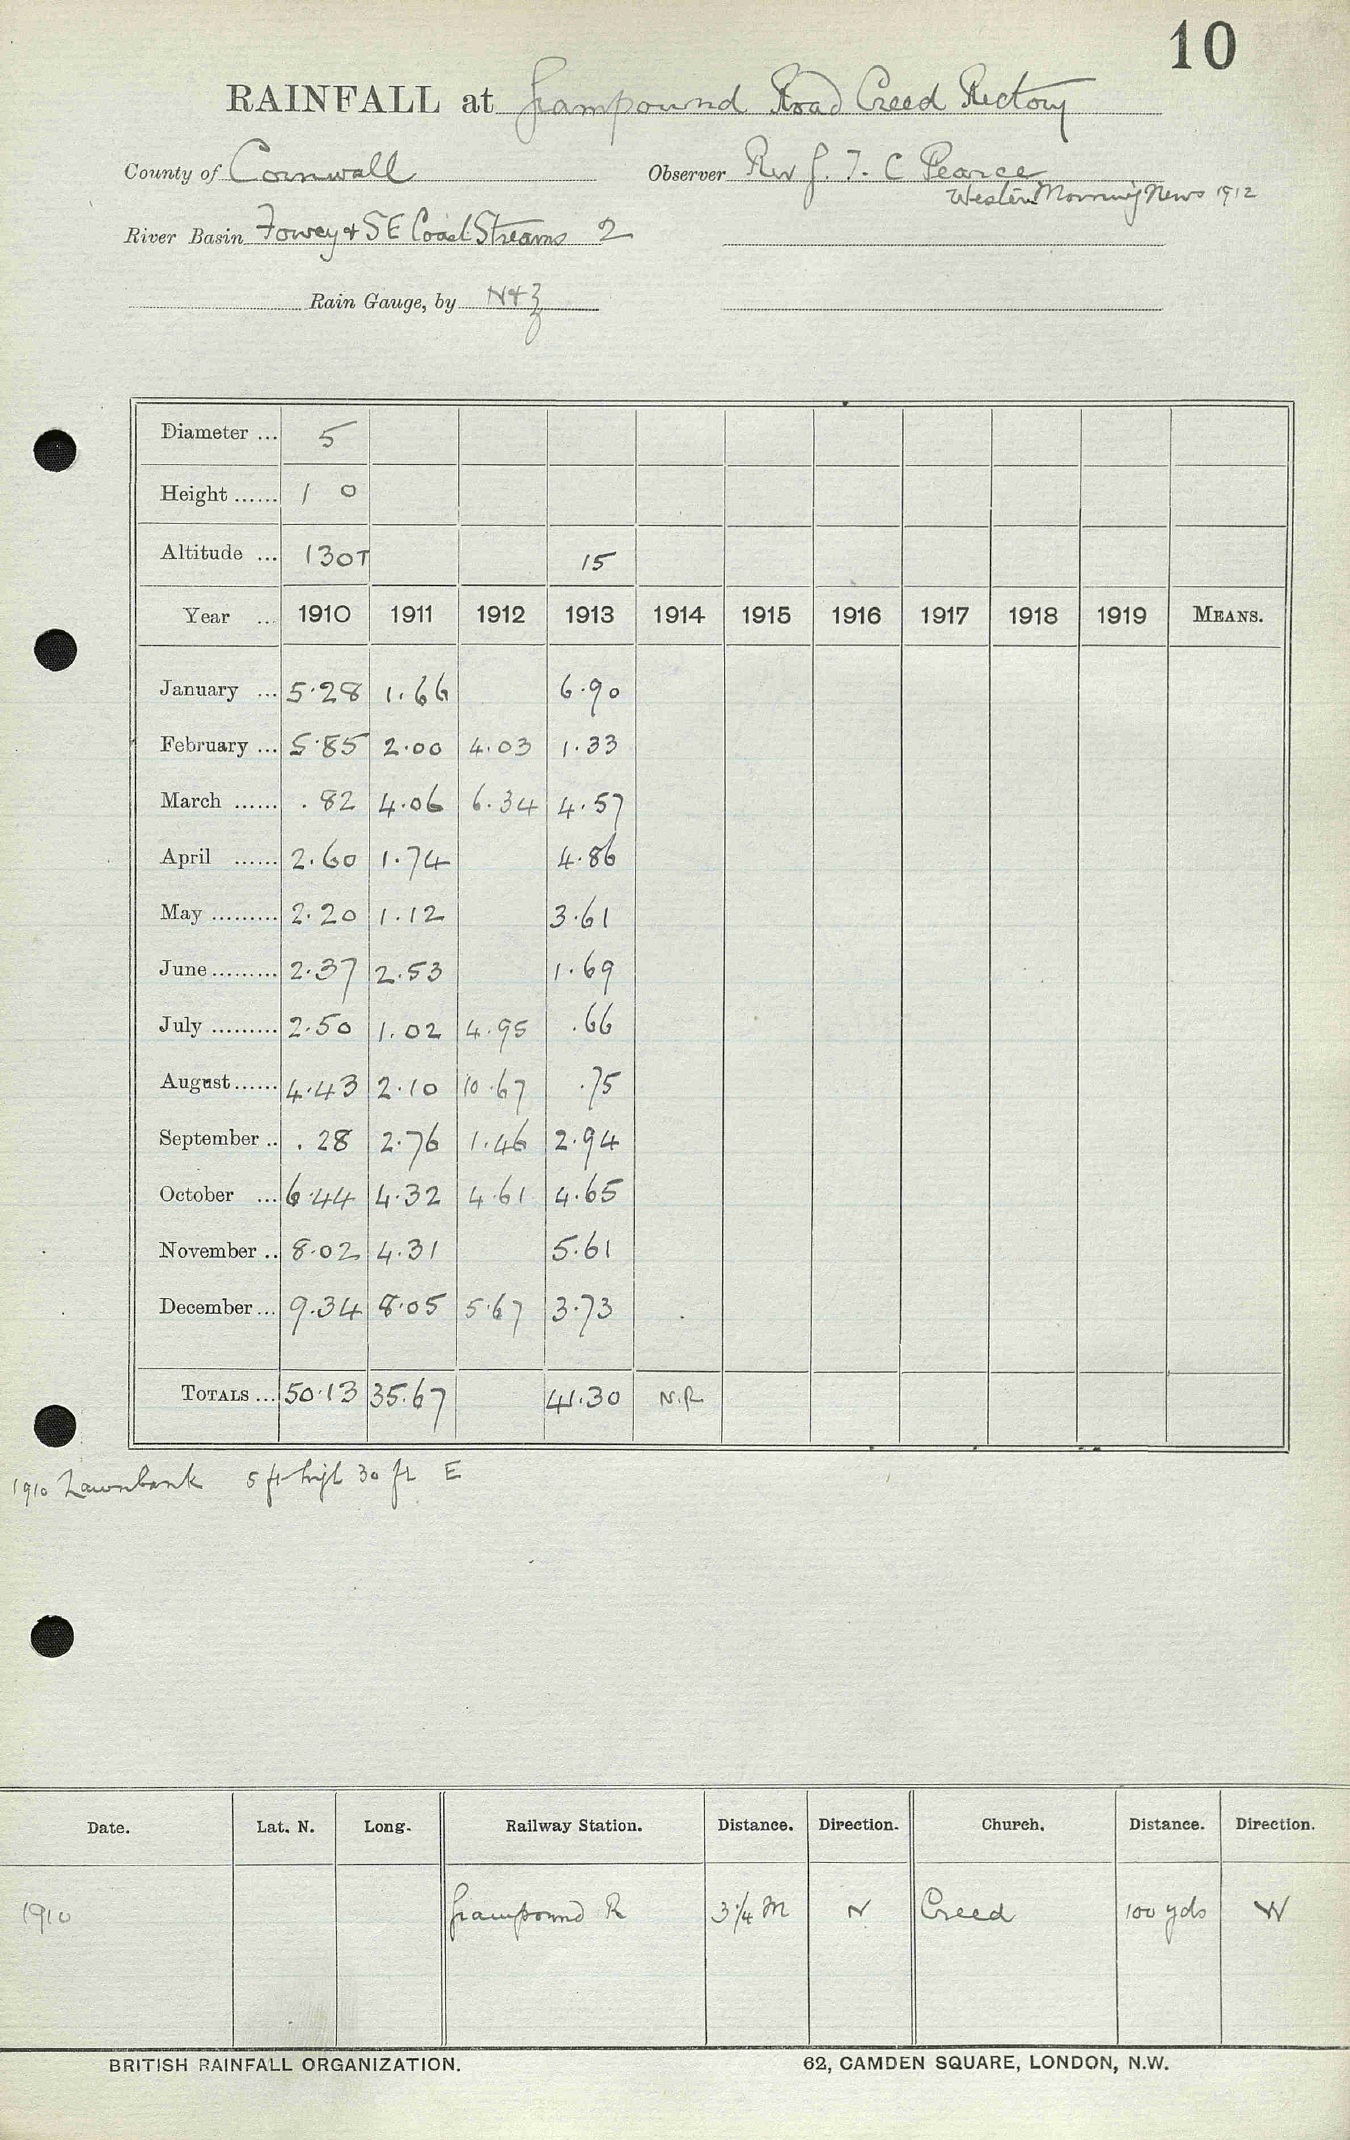 10
RAINFALL at Grampound Road Creed Rectory
County of Cornwall Observer Rev J. T. C Pearce
Western Morning News 1912
River Basin Fowey & SE Coast Streams 2
Rain Gauge, by N & Z
Diameter ... 5
Height ...... 1 0
Altitude ... 130T 15
Year ... 1910 1911 1912 1913 1914 1915 1916 1917 1918 1919 MEANS.
January ... 5.28 1.66 6.90
February ... 5.85 2.00 4.03 1.33
March ...... .82 4.06 6.34 4.57
April ...... 2.60 1.74 4.86
May ......... 2.20 1.12 3.61
June ......... 2.37 2.53 1.69
July ......... 2.50 1.02 4.95 .66
August ...... 4.43 2.10 10.67 .75
September .. .28 2.76 1.46 2.94
October ... 6.44 4.32 4.61 4.65
November .. 8.02 4.31 5.61
December ... 9.34 8.05 5.67 3.73
TOTALS ... 50.13 35.67 41.30 N.R
1910 Lawnbank 5 ft high 30 ft E
Date. Lat. N. Long. Railway Station. Distance. Direction. Church. Distance. Direction.
1910 Grampound R 3 1/4 M N Creed 100 yds W
BRITISH RAINFALL ORGANIZATION. 62, CAMDEN SQUARE, LONDON, N.W.